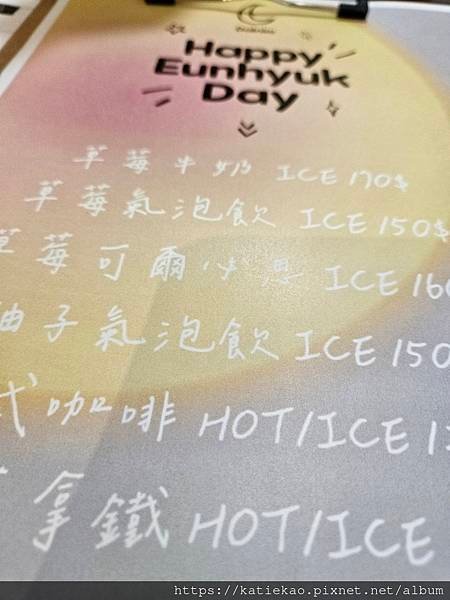 Happy
Eunhyuk
Day
草莓牛奶 ICE 170$
草莓氣泡飲 ICE 150$
草莓可爾必思 ICE 16
柚子氣泡飲 ICE 150
式咖啡 HOT/ICE 1
拿鐵 HOT/ICE
https://katiekao.pixnet.net/album